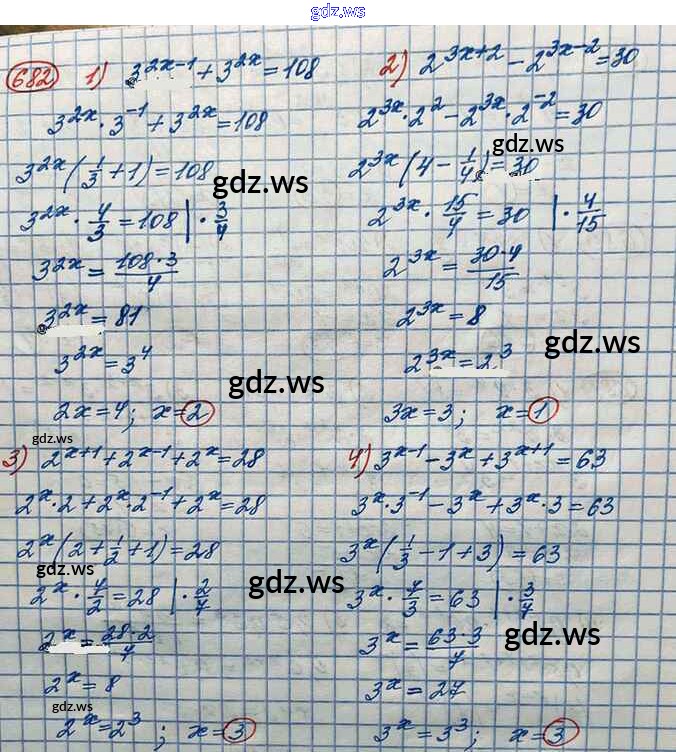 gdz.ws
682 1) 3^(2x-1) + 3^(2x) = 108
3^(2x) · 3^(-1) + 3^(2x) = 108
3^(2x) (1/3 + 1) = 108
gdz.ws
3^(2x) · 4/3 = 108 | · 3/4
3^(2x) = (108·3)/4
3^(2x) = 81
3^(2x) = 3^4
gdz.ws
2x = 4; x = 2
2) 2^(3x+2) - 2^(3x-2) = 30
2^(3x) · 2^2 - 2^(3x) · 2^(-2) = 30
gdz.ws
2^(3x) (4 - 1/4) = 30
2^(3x) · 15/4 = 30 | · 4/15
2^(3x) = (30·4)/15
2^(3x) = 8
gdz.ws
2^(3x) = 2^3
3x = 3; x = 1
gdz.ws
3) 2^(x+1) + 2^(x-1) + 2^x = 28
2^x · 2 + 2^x · 2^(-1) + 2^x = 28
2^x (2 + 1/2 + 1) = 28
gdz.ws
gdz.ws
2^x · 7/2 = 28 | · 2/7
2^x = (28·2)/7
2^x = 8
gdz.ws
2^x = 2^3; x = 3
4) 3^(x-1) - 3^x + 3^(x+1) = 63
3^x · 3^(-1) - 3^x + 3^x · 3 = 63
3^x (1/3 - 1 + 3) = 63
3^x · 7/3 = 63 | · 3/7
3^x = (63·3)/7
gdz.ws
3^x = 27
3^x = 3^3; x = 3